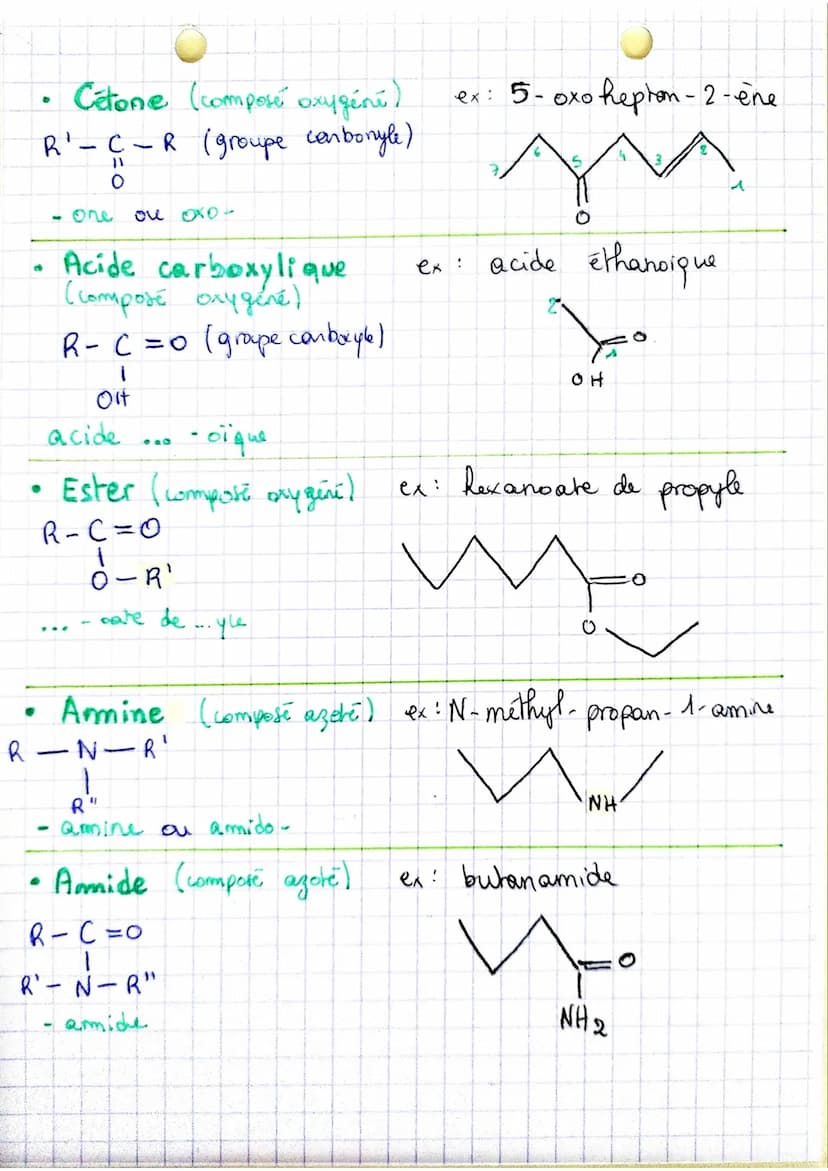 • Cétone (composé oxygéné) ex: 5-oxohepten-2-ène
R'-C-R (groupe carbonyle)
O
7 6 5 4 3 2 1
O
-one ou oxo-
• Acide carboxylique ex: acide éthanoïque
(composé oxygéné)
2
R-C=O (groupe carboxyle)
O
1
OH
OH
acide ... -oïque
• Ester (composé oxygéné) ex: hexanoate de propyle
R-C=O
O-R'
O
O
... -oate de ...yle
• Amine (composé azoté) ex: N-méthyl-propan-1-amine
R-N-R'
R"
NH
-amine ou amido-
• Amide (composé azoté) ex: butanamide
R-C=O
O
R'-N-R"
NH2
-amide